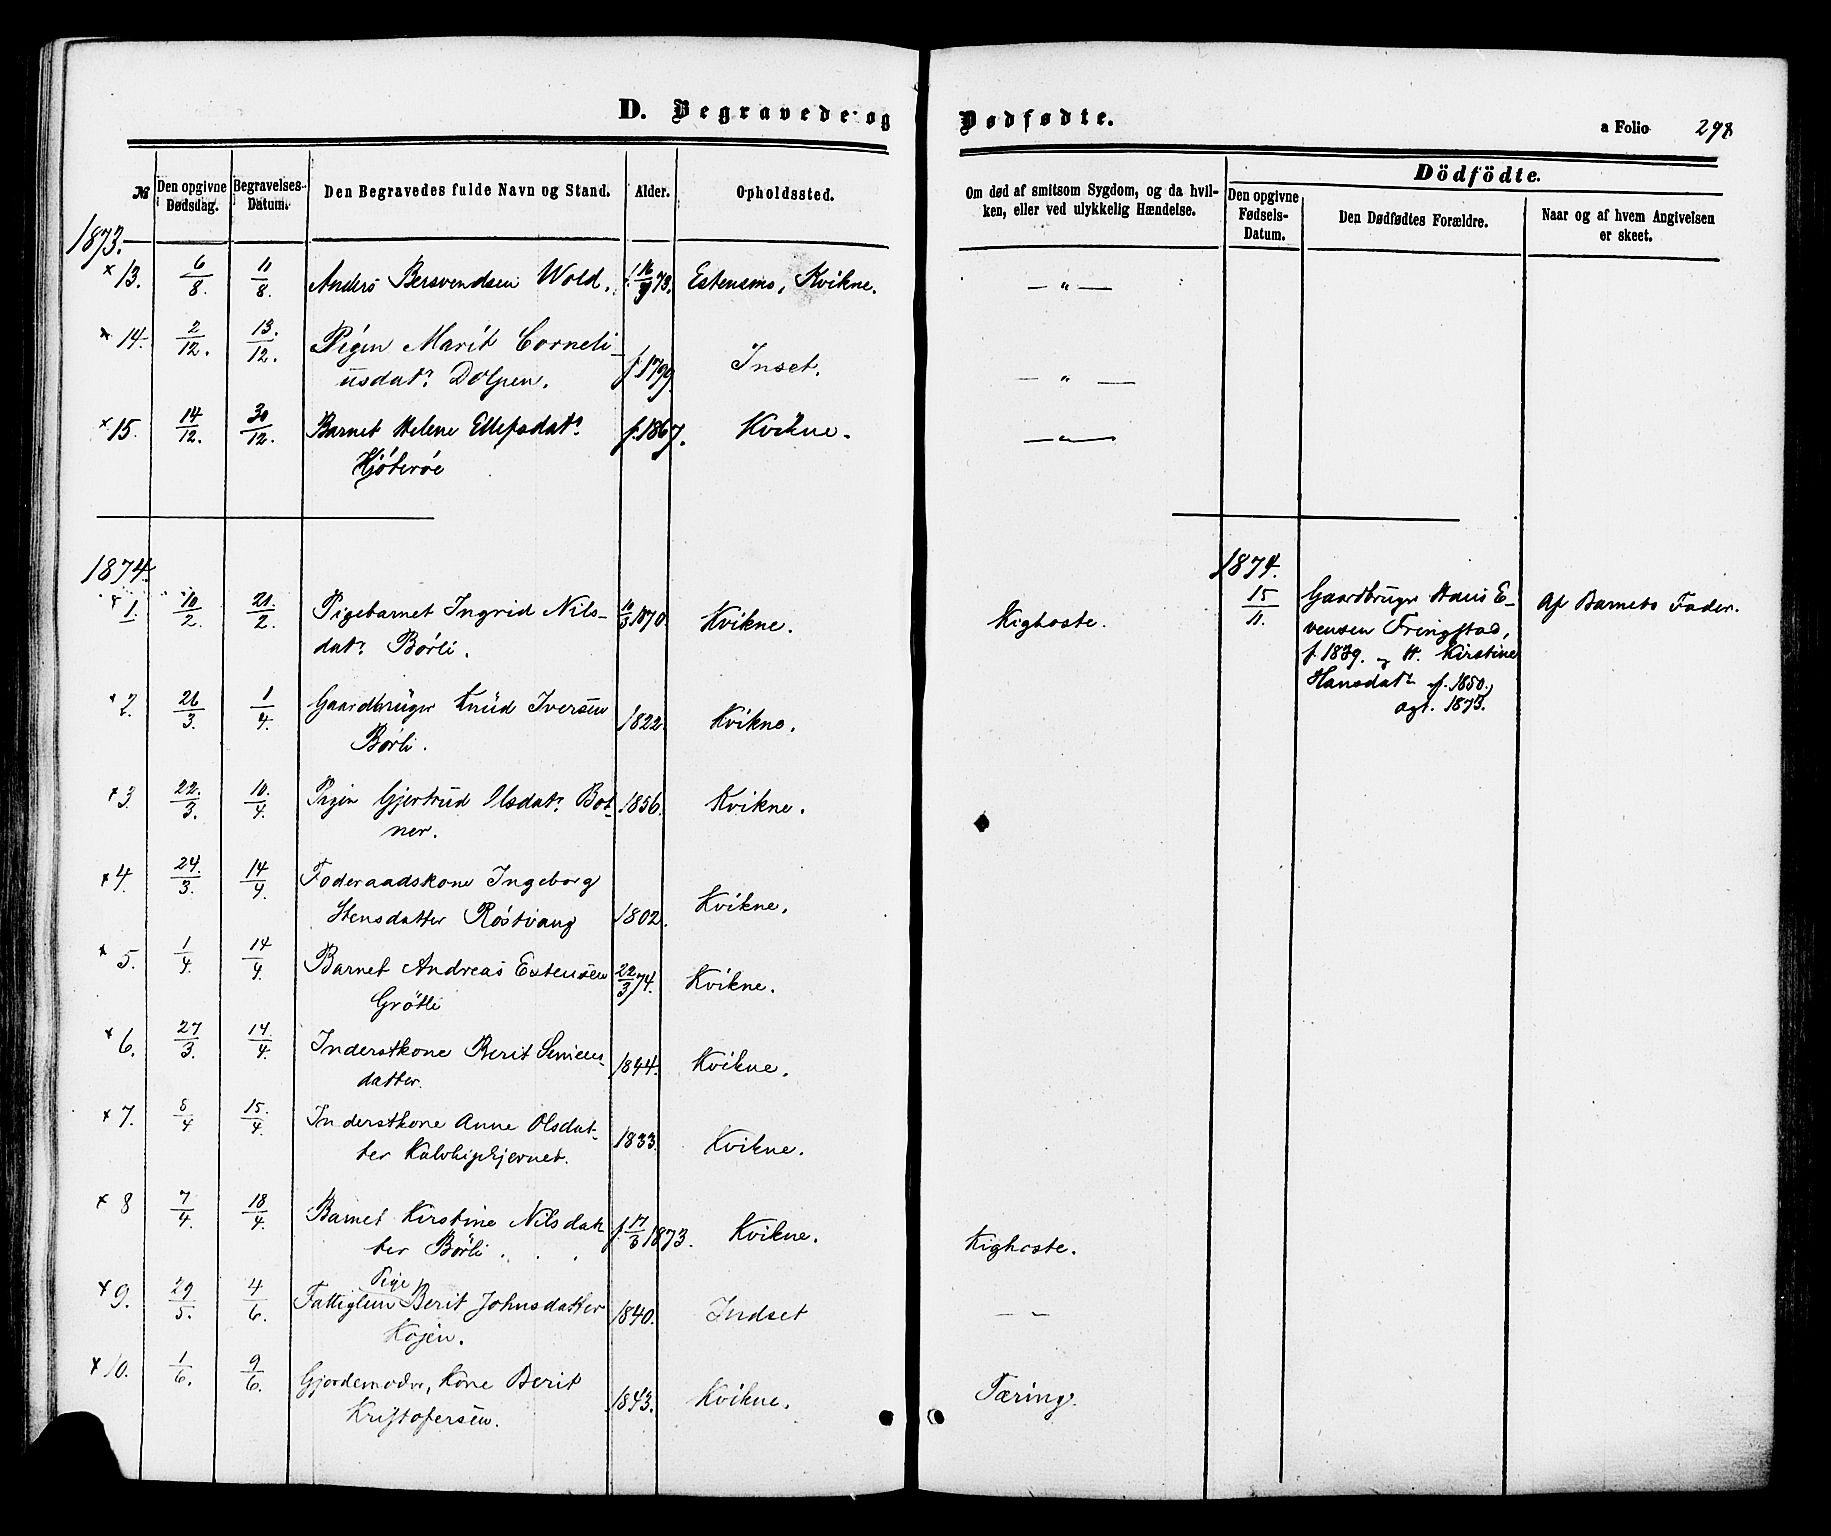 D. Begravede og Dødfødte.
a Folio 298
№
Den opgivne Dødsdag.
Begravelses-Datum.
Den Begravedes fulde Navn og Stand.
Alder.
Opholdssted.
Om død af smitsom Sygdom, og da hvil-
ken, eller ved ulykkelig Hændelse.
Dödfödte.
Den opgivne Fødsels-Datum.
Den Dødfødtes Forældre.
Naar og af hvem Angivelsen er skeet.
1873.
× 13. 6/8. 11/8. Anders Bersvendsen Wold. 73. Estensmo, Kvikne. — " —
× 14. 2/12. 13/12. Pigen Marit Corneli-
usdatr. f. 1799 Inset. — " —
× 15. 14/12. 30/12. Barnet Helene Ellefsdatr. f. 1867. Kvikne. — " —
1874.
× 1. 10/2. 21/2. Pigebarnet Ingrid Nils-
datr. Børli. 10/3 1870. Kvikne. Kighoste.
× 2. 26/3. 1/4. Gaardbruger Knud Iversen
Børli. 1822. Kvikne.
× 3. 22/3. 10/4. Pigen Gjertrud Olsdatr. Bot-
ner. 1856. Kvikne.
× 4. 24/3. 14/4. Føderaadskone Ingeborg
Stensdatter Röstvang 1802. Kvikne.
× 5. 1/4. 14/4. Barnet Andreas Estensen
Grötli 22/3 74. Kvikne.
× 6. 27/3. 14/4. Inderstkone Berit
datter. 1844. Kvikne.
× 7. 8/4 15/4. Inderstkone Anne Olsdat-
ter 1833. Kvikne.
× 8 7/4. 18/4. Barnet Kirstine Nilsdat
ter Børli. f. 17/3 1873. Kvikne. Kighoste.
× 9. 29/5. 4/6. Pige
Fattiglem Berit Johnsdatter
Kojen. 1840. Indset — " —
× 10. 1/6. 9/6. Gjordemoder, Kone Berit
Kristofersen. 1843. Kvikne. Tæring.
1874.
15/11. Gaardbruger Hans E-
vensen Fringstad,
f. 1839. og H. Kirstine
Hansdatr f. 1850.
ægt. 1873.
Af Barnets Fader.